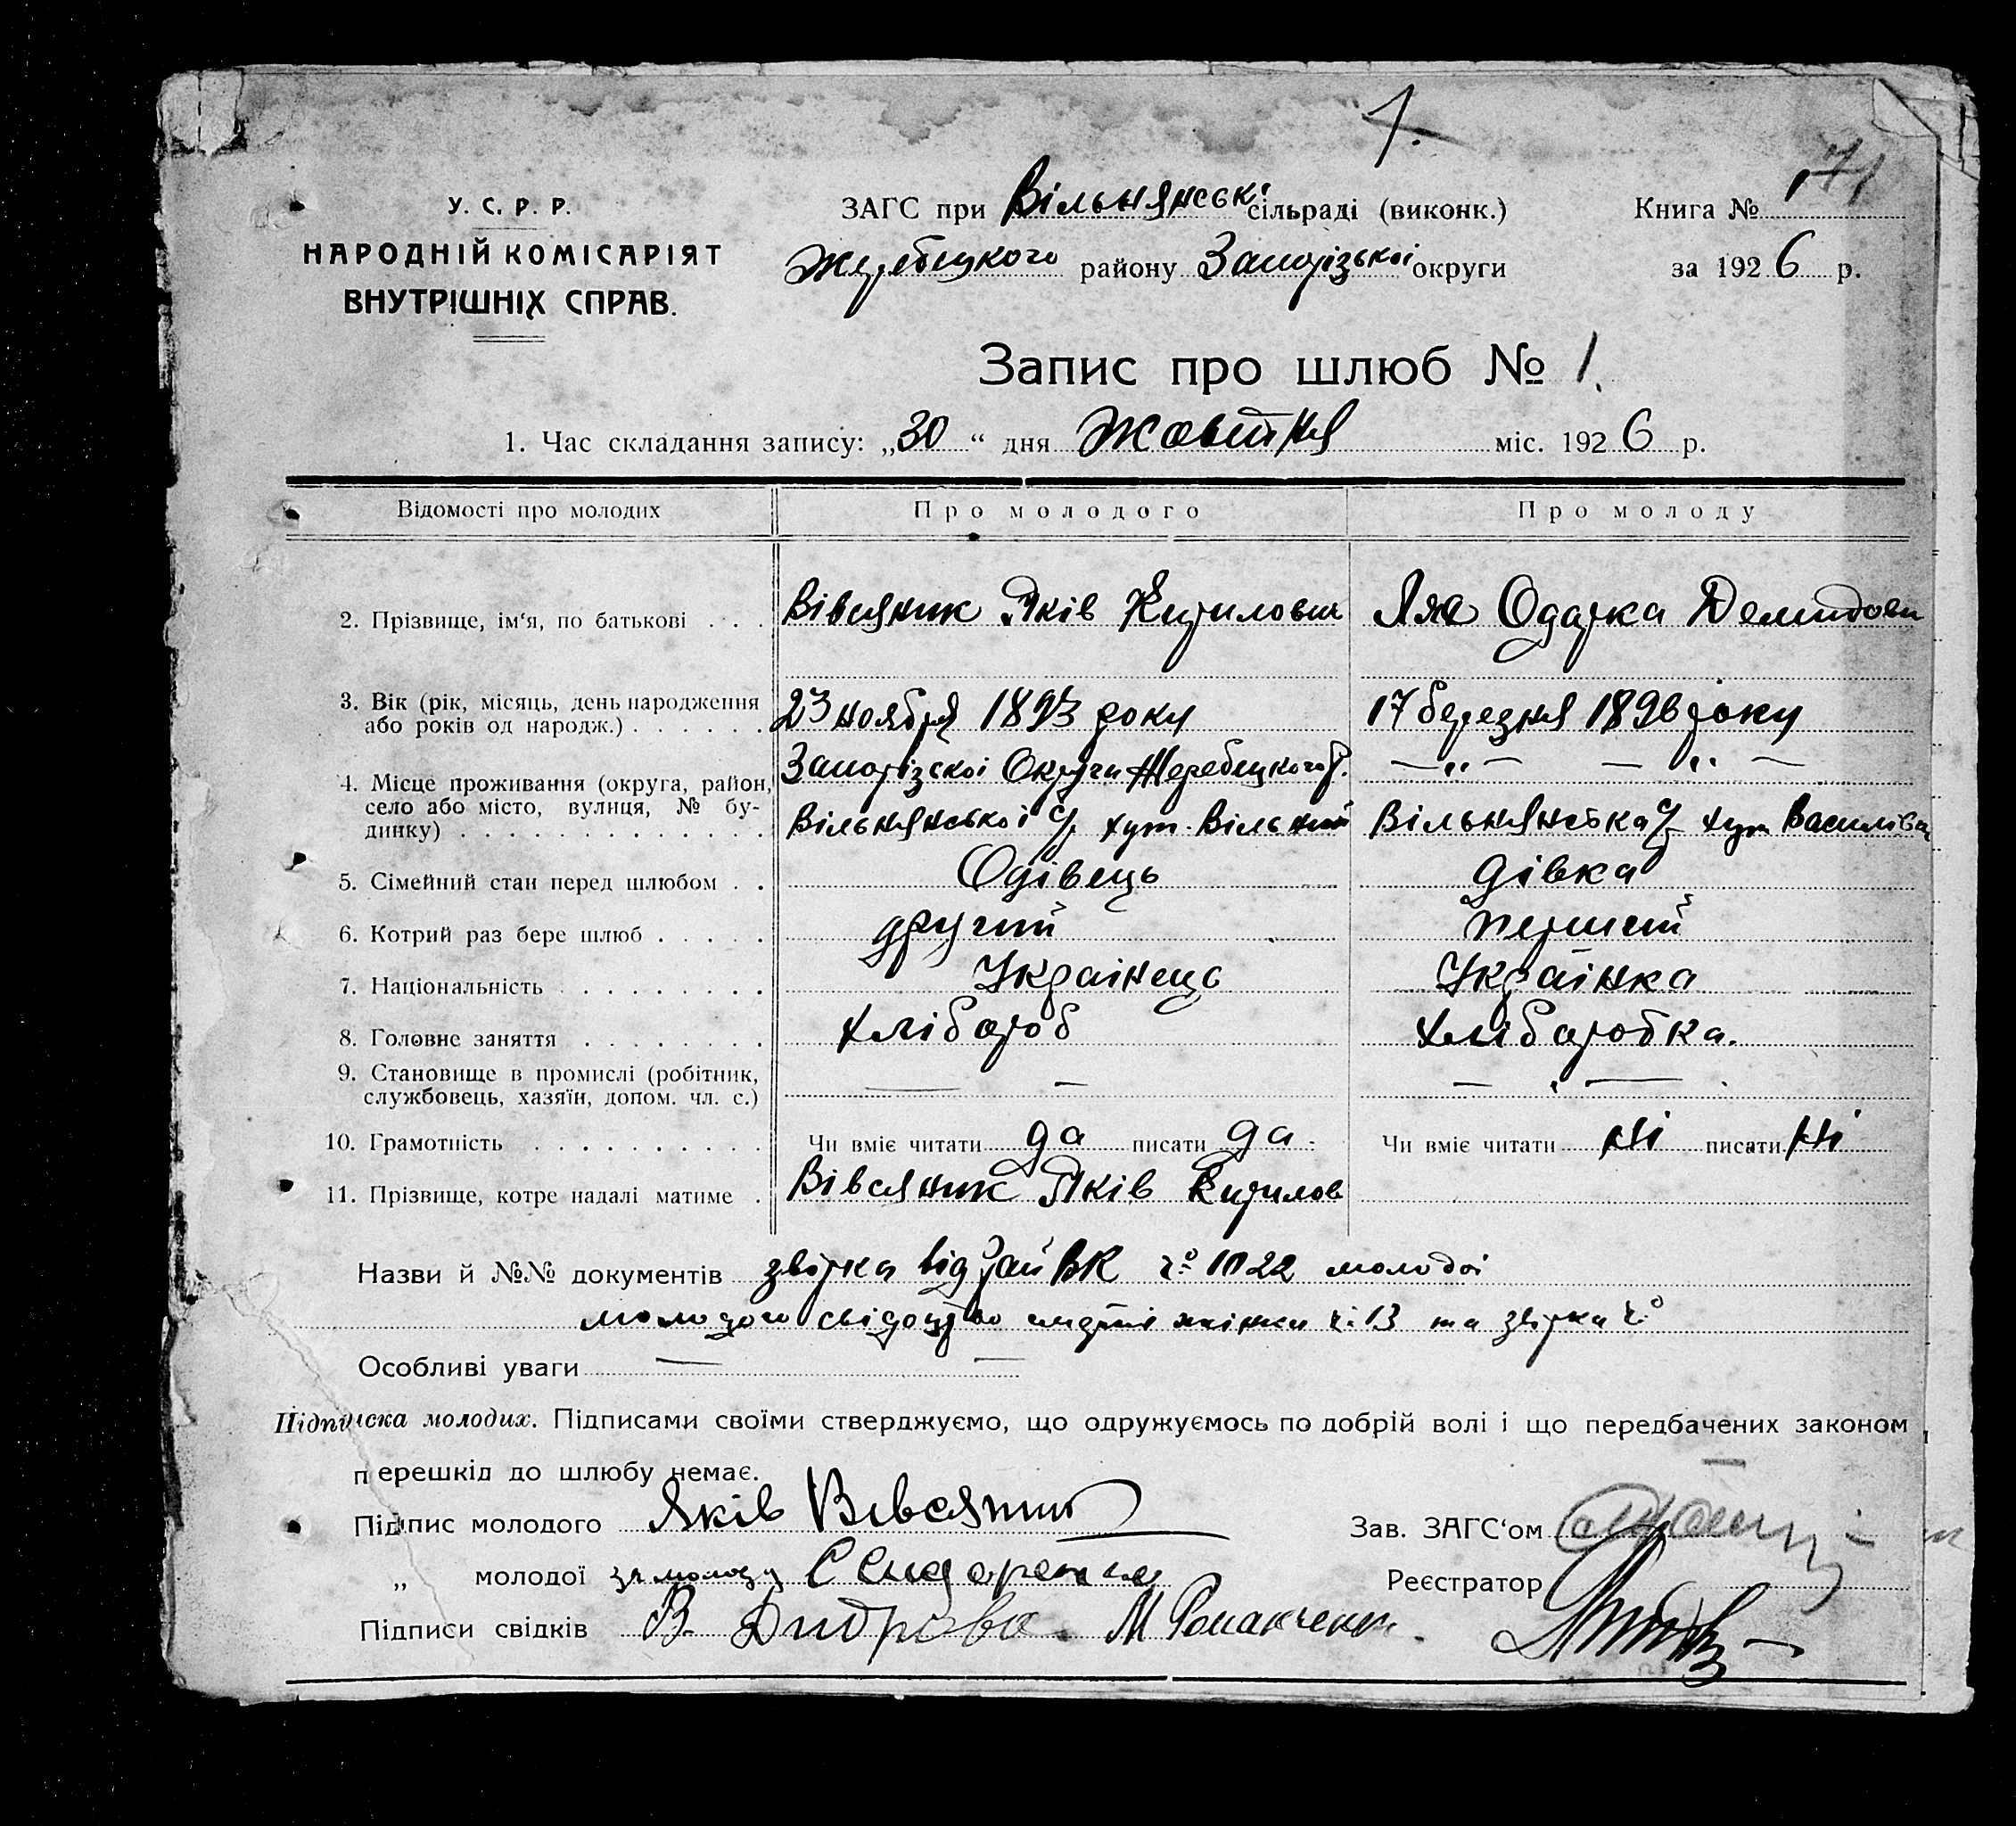 1.
171
У. С. Р. Р.
НАРОДНІЙ КОМІСАРІЯТ
ВНУТРІШНІХ СПРАВ.
ЗАГС при Вільнянські сільраді (виконк.)
Жеребецкого району Запорізької округи
Книга №
за 1926 р.
Запис про шлюб № 1.
1. Час складання запису: „30“ дня Жовтня міс. 1926 р.
Відомості про молодих Про молодого Про молоду
2. Прізвище, ім‘я, по батькові . . . Вівсяник Яків Кирилович Ляе Одарка Демидовн
3. Вік (рік, місяць, день народження
або років од народж.) . . . . . . 23 ноября 1893 року 17 березня 1896 року
4. Місце проживання (округа, район, Запорізскоі Округи Жеребецкого Р. — „ — — „ —
село або місто, вулиця, № бу-
динку) . . . . . . . . . . . . . Вільнянськоі с/р хут. Вільний Вільнянська с/р хут Василівка
5. Сімейний стан перед шлюбом . . Одівець дівка
6. Котрий раз бере шлюб . . . . . другий перший
7. Національність . . . . . . . . Українець Українка
8. Головне заняття . . . . . . . . хлібороб хлібаробка.
9. Становище в промислі (робітник,
службовець, хазяїн, допом. чл. с.) — — — —
10. Грамотність . . . . . . . . . . Чи вміє читати да писати да Чи вміє читати ні писати ні
11. Прізвище, котре надалі матиме . Вівсяник Яків Кирилов
Назви й №№ документів звірка від Рай ВК ч: 1022 молодоі
молодого свідоцтво смерті жінки ч: 13 та звірка ч:
Особливі уваги — —
Підписка молодих. Підписами своїми стверджуємо, що одружуємось по добрій волі і що передбачених законом
перешкід до шлюбу немає.
Підпис молодого Яків Вівсяник Зав. ЗАГС‘ом
„ молодої за молоду Реєстратор
Підписи свідків В. М Романченко